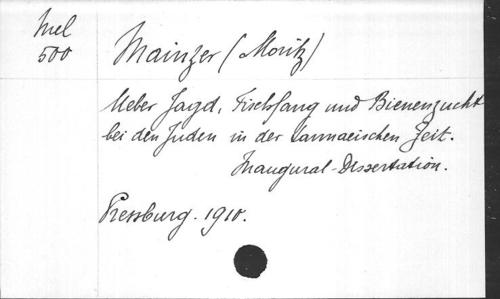 Mel
500
Mainzer (Moritz)
Ueber Jagd, Fischfang und Bienenzucht
bei den Juden in der tannaeischen Zeit.
Inaugural-Dissertation.
Pressburg. 1910.